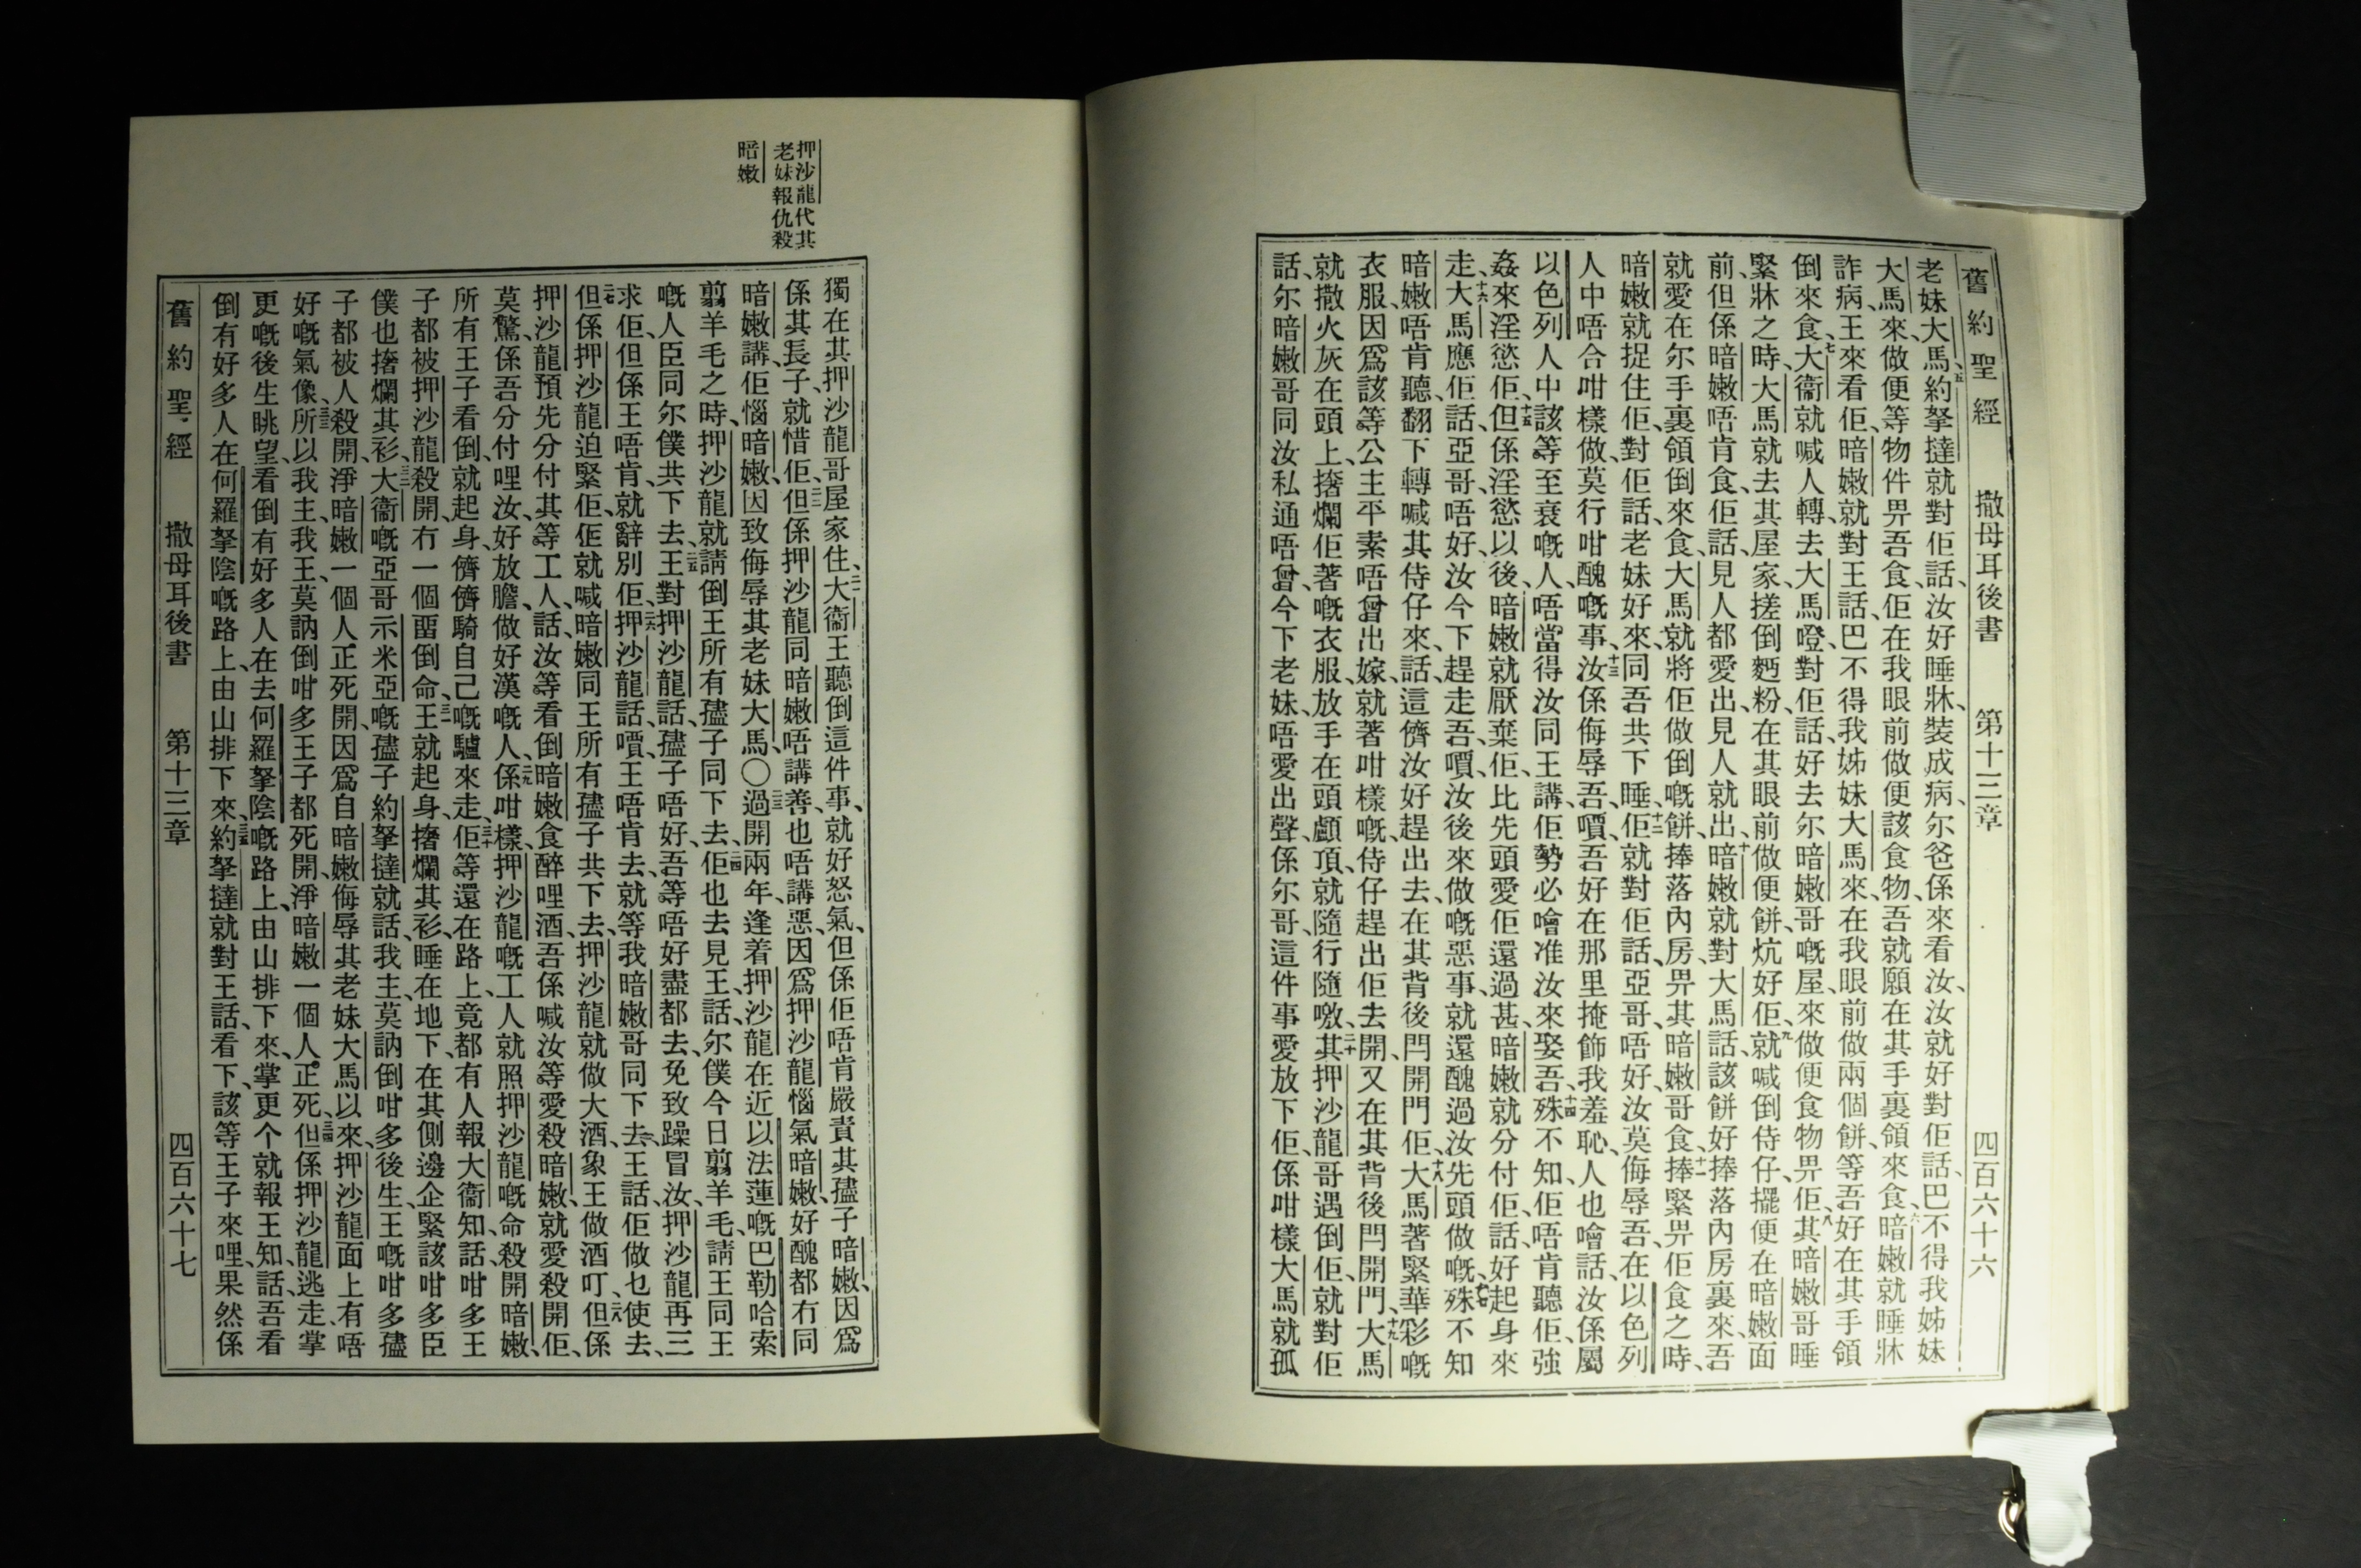 舊約聖經 撒母耳後書 第十三章 四百六十六
老妹大馬、五約拏撻就對佢話、汝好睡牀、裝成病、尔爸係來看汝、汝就好對佢話、巴不得我姊妹
大馬來、做便等物件畀吾食、佢在我眼前做便該食物、吾就願在其手裏領來食、六暗嫩就睡牀
詐病、王來看佢、暗嫩就對王話、巴不得我姊妹大馬來、在我眼前做兩個餅、等吾好在其手領
倒來食、七大衞就喊人轉去大馬噔、對佢話、好去尔暗嫩哥嘅屋、來做便食物畀佢、八其暗嫩哥睡
緊牀之時、大馬就去其屋家、搓倒麫粉、在其眼前做便餅、炕好佢、九就喊倒侍仔、擺便在暗嫩面
前、但係暗嫩唔肯食、佢話、見人都愛出、見人就出、十暗嫩就對大馬話、該餅好捧落內房裏來、吾
就愛在尔手裏領倒來食、大馬就將佢做倒嘅餅、捧落內房、畀其暗嫩哥食、十一捧緊畀佢食之時、
暗嫩就捉住佢、對佢話、老妹好來、同吾共下睡、十二佢就對佢話、亞哥、唔好、汝莫侮辱吾、在以色列
人中唔合咁樣做、莫行咁醜嘅事、十三汝係侮辱吾、嘪吾好在那里掩飾我羞恥、人也噲話、汝係屬
以色列人中該等至衰嘅人、唔當得汝同王講、佢勢必噲准汝來娶吾、十四殊不知、佢唔肯聽佢、強
姦來淫慾佢、十五但係淫慾以後、暗嫩就厭棄佢、比先頭愛佢還過甚、暗嫩就分付佢話、好起身來
走、十六大馬應佢話、亞哥、唔好、汝今下趕走吾、嘪汝後來做嘅惡事、就還醜過汝先頭做嘅、殊不知
暗嫩唔肯聽、十七翻下轉喊其侍仔來、話、這儕汝好趕出去、在其背後閂開門佢、十八大馬著緊華彩嘅
衣服、因爲該等公主平素唔曾出嫁、就著咁樣嘅、侍仔趕出佢去開、又在其背後閂開門、十九大馬
就撒火灰在頭上、撦爛佢著嘅衣服、放手在頭顱頂、就隨行隨噭、二十其押沙龍哥遇倒佢、就對佢
話、尔暗嫩哥同汝私通唔曾、今下老妹、唔愛出聲、係尔哥、這件事愛放下佢、係咁樣大馬就孤
押沙龍代其
老妹報仇殺
暗嫩
獨在其押沙龍哥屋家住、二一大衞王聽倒這件事、就好怒氣、但係佢唔肯嚴責其孻子暗嫩、因爲
係其長子、就惜佢、二二但係押沙龍同暗嫩唔講善也唔講惡、因爲押沙龍惱氣暗嫩、好醜都冇同
暗嫩講、佢惱暗嫩、因致侮辱其老妹大馬、〇二三過開兩年、逢着押沙龍在近以法蓮嘅巴勒哈索
翦羊毛之時、押沙龍就請倒王所有孻子同下去、二四佢也去見王、話、尔僕今日翦羊毛、請王同王
嘅人臣同尔僕共下去、二五王對押沙龍話、孻子唔好、吾等唔好盡都去、免致躁冒汝、押沙龍再三
求佢、但係王唔肯、就辭別佢、二六押沙龍話、嘪王唔肯去、就等我暗嫩哥同下去、王話、佢做乜使去、
二七但係押沙龍迫緊佢、佢就喊暗嫩同王所有孻子共下去、押沙龍就做大酒、象王做酒叮、二八但係
押沙龍預先分付其等工人、話、汝等看倒暗嫩食醉哩酒、吾係喊汝等愛殺暗嫩、就愛殺開佢、
莫驚、係吾分付哩汝、好放膽、做好漢嘅人、二九係咁樣、押沙龍嘅工人就照押沙龍嘅命、殺開暗嫩、
所有王子看倒、就起身、儕儕騎自己嘅驢來走、三十佢等還在路上、竟都有人報大衞知、話、咁多王
子都被押沙龍殺開、冇一個畱倒命、三一王就起身、撦爛其衫、睡在地下、在其側邊企緊該咁多臣
僕也撦爛其衫、三二大衞嘅亞哥示米亞嘅孻子約拏撻就話、我主、莫訥倒咁多後生、王嘅咁多孻
子都被人殺開、淨暗嫩一個人正死開、因爲自暗嫩侮辱其老妹大馬以來、押沙龍面上有唔
好嘅氣像、三三所以我主、我王、莫訥倒咁多王子都死開、淨暗嫩一個人正死、三四但係押沙龍逃走、掌
更嘅後生眺望、看倒有好多人在去何羅拏陰嘅路上、由山排下來、掌更个就報王知、話、吾看
倒有好多人在何羅拏陰嘅路上、由山排下來、三五約拏撻就對王話、看下、該等王子來哩、果然係
舊約聖經 撒母耳後書 第十三章 四百六十七